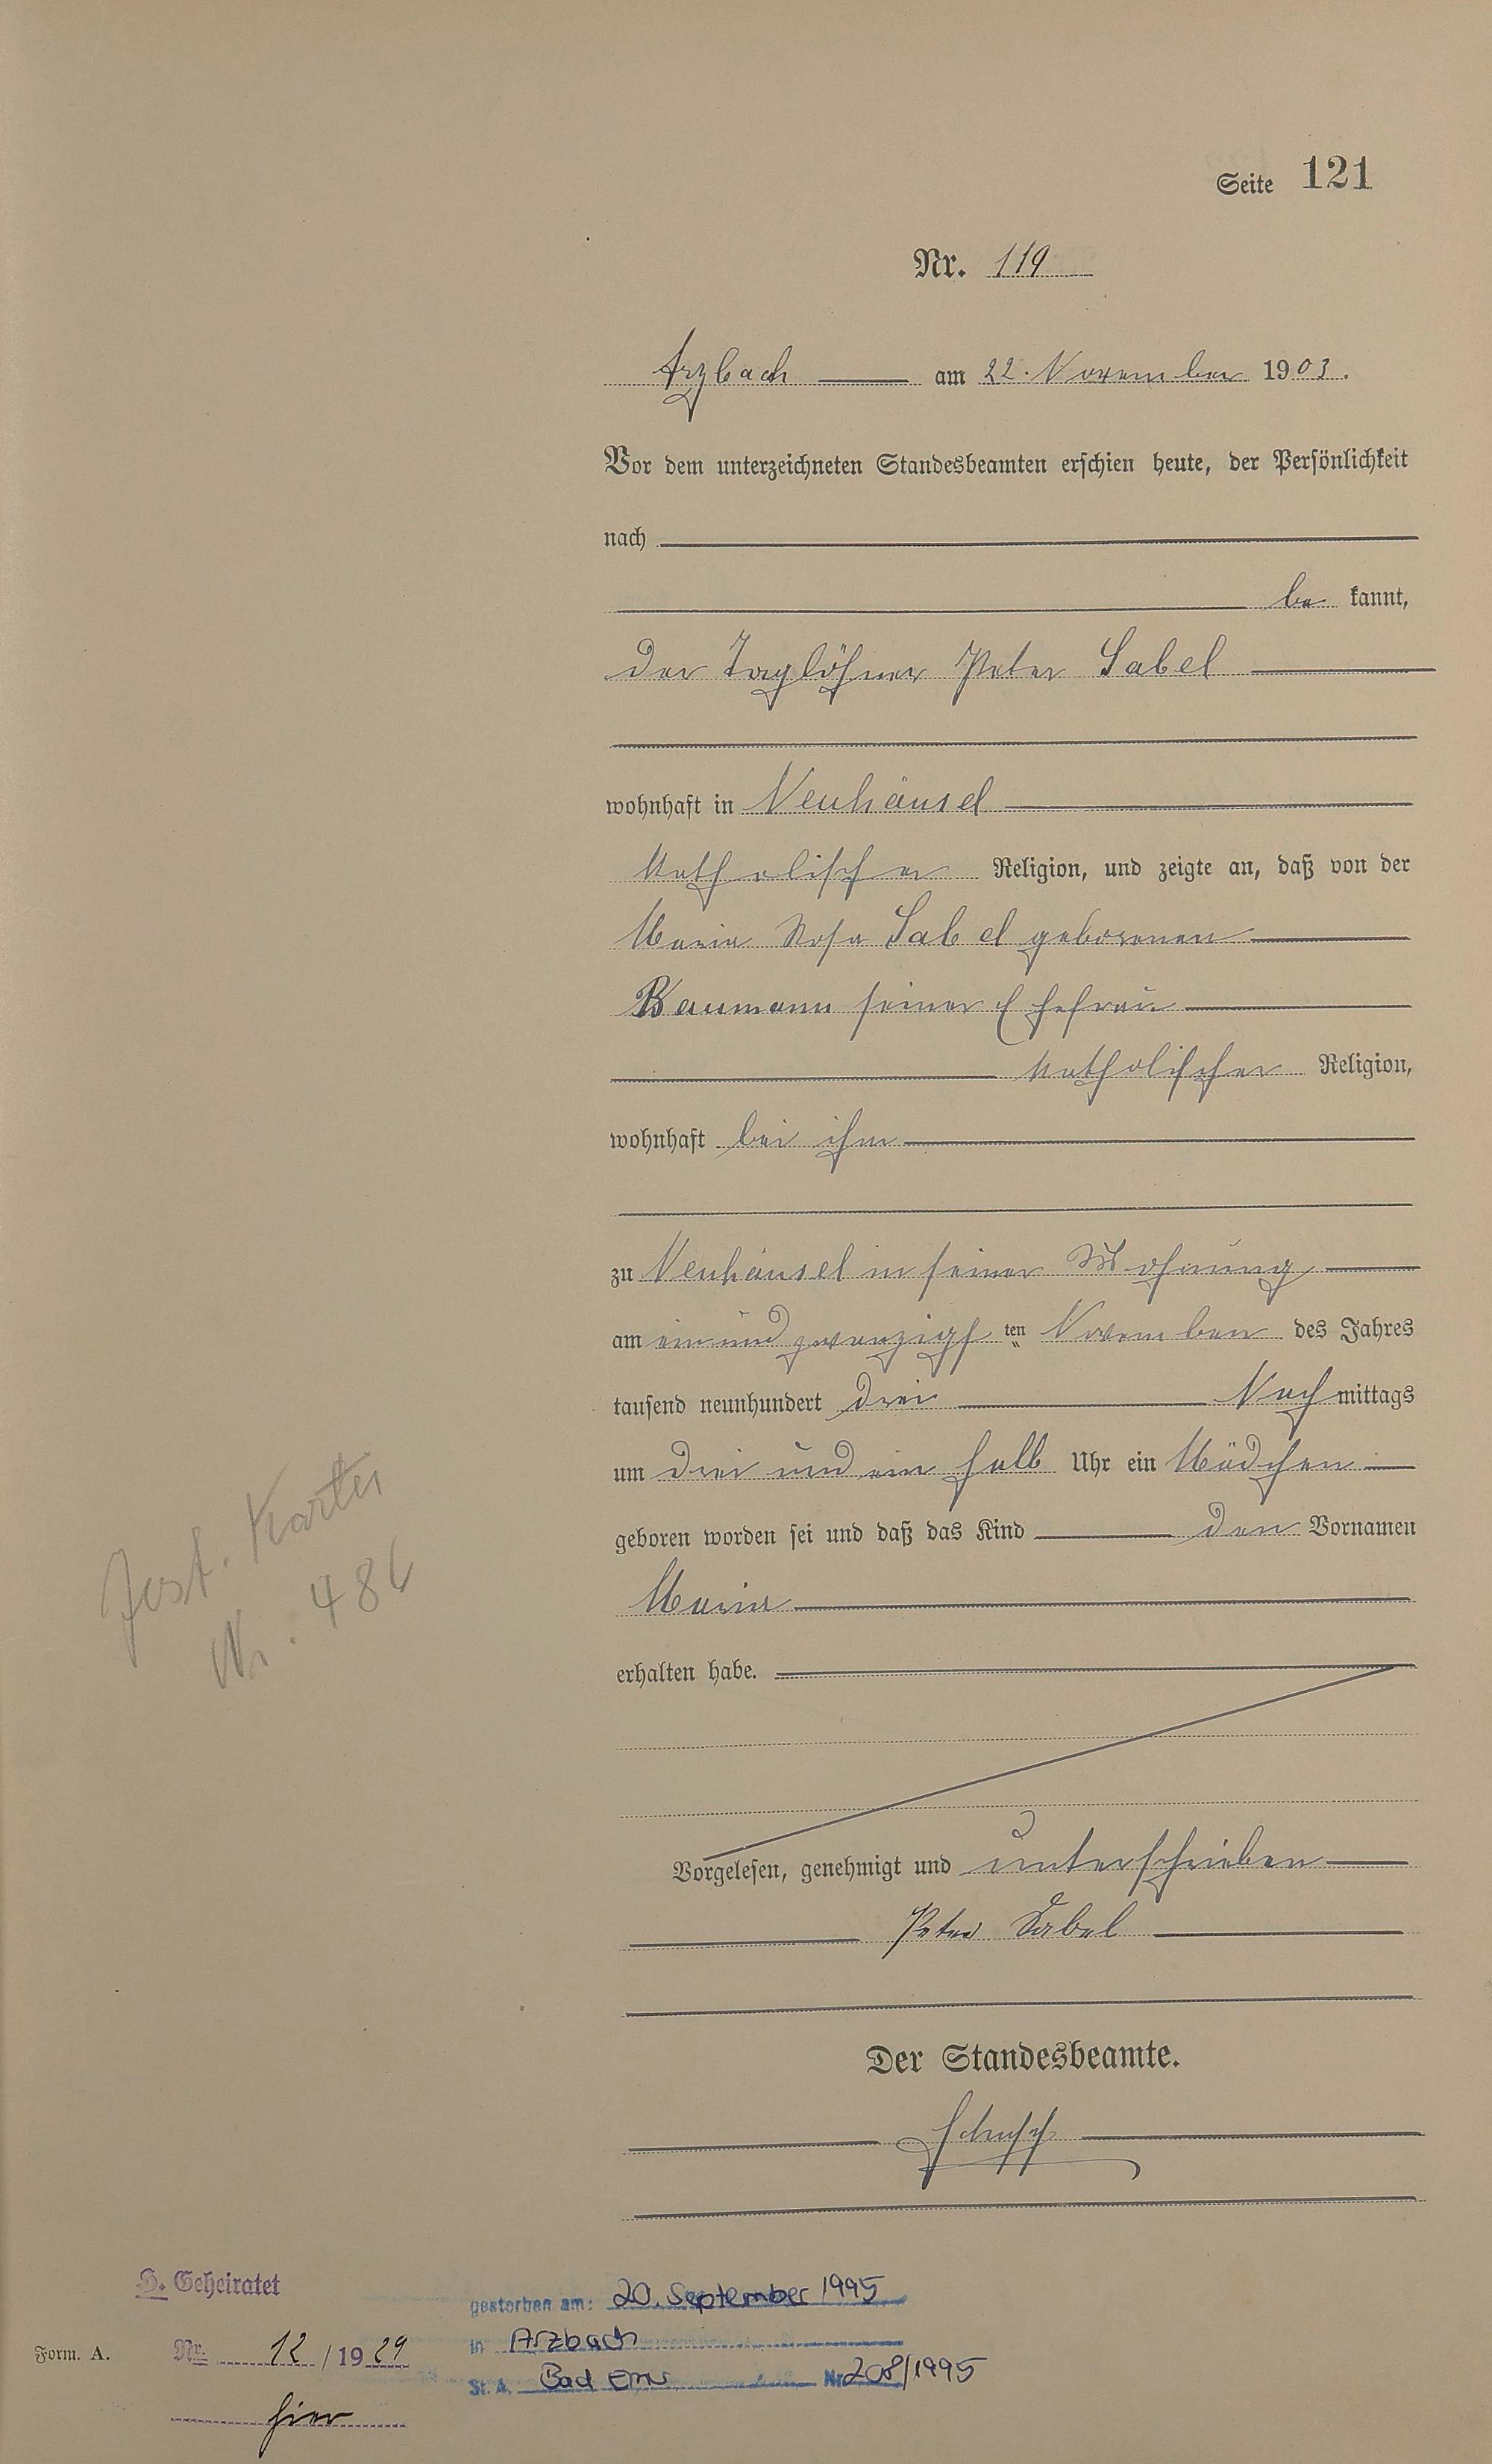 Seite 121
Nr. 119
Arzbach am 22. November 1903.
Vor dem unterzeichneten Standesbeamten erschien heute, der Persönlichkeit
nach
be kannt,
der Taglöhner Peter Sabel
wohnhaft in Neuhäusel
katholischer Religion, und zeigte an, daß von der
Maria Rosa Sabel geborenen
Baumann seiner Ehefrau
katholischer Religion,
wohnhaft bei ihm
zu Neuhäusel in seiner Wohnung
am einundzwanzigsten November des Jahres
tausend neunhundert drei Nachmittags
um drei und ein halb Uhr ein Mädchen
geboren worden sei und daß das Kind den Vornamen
Maria
erhalten habe.
Vorgelesen, genehmigt und unterschrieben
Peter Sabel
Der Standesbeamte.
Nr. 486
H. Geheiratet
Form. A. Nr. 12/1929
hier
gestorben am: 20. September 1995
in Arzbach
St. A. Bad Ems Nr. 208/1995